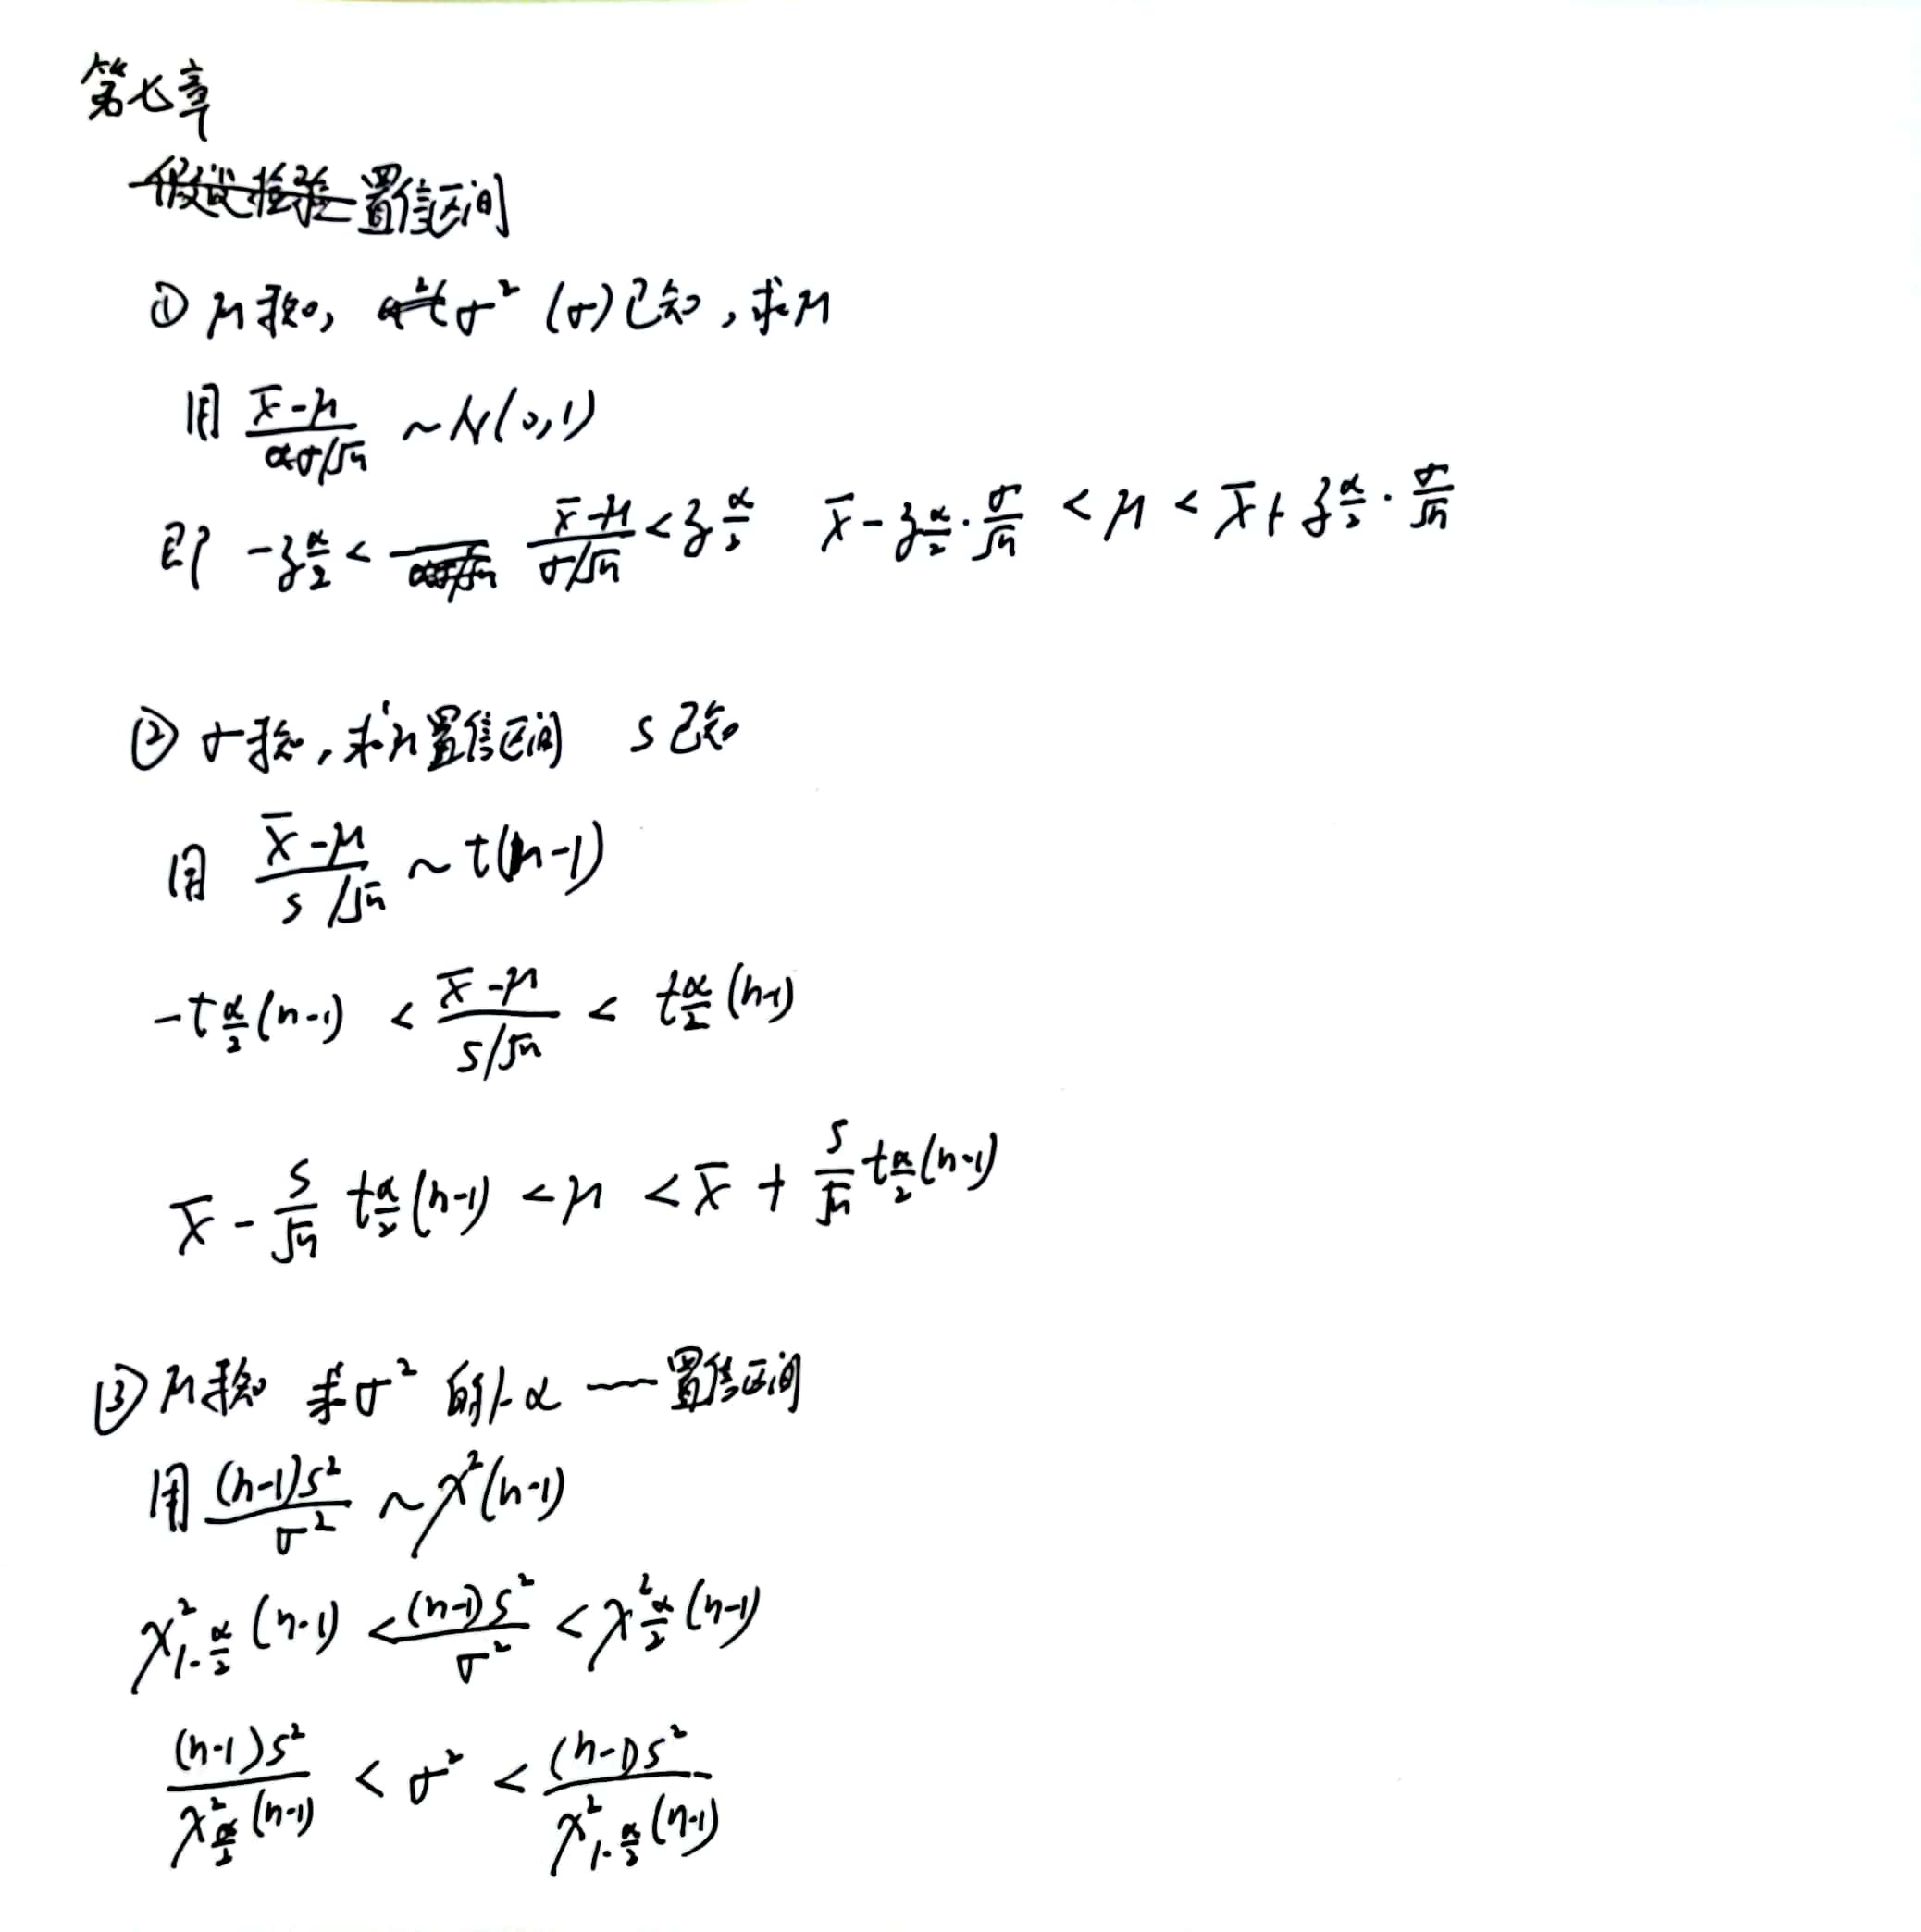 第七章
置信区间
① μ未知, σ² (σ)已知,求μ
用 (x̄-μ)/(σ/√n) ~N(0,1)
即 -z_{α/2} < (x̄-μ)/(σ/√n) < z_{α/2} x̄ - z_{α/2}·σ/√n < μ < x̄ + z_{α/2}·σ/√n
② σ未知,求μ置信区间 S已知
用 (x̄-μ)/(S/√n) ~ t(n-1)
-t_{α/2}(n-1) < (x̄-μ)/(S/√n) < t_{α/2}(n-1)
x̄ - S/√n t_{α/2}(n-1) < μ < x̄ + S/√n t_{α/2}(n-1)
③ μ未知 求σ² 的1-α — 置信区间
用 (n-1)S²/σ² ~ χ²(n-1)
χ²_{1-α/2}(n-1) < (n-1)S²/σ² < χ²_{α/2}(n-1)
(n-1)S²/χ²_{α/2}(n-1) < σ² < (n-1)S²/χ²_{1-α/2}(n-1)